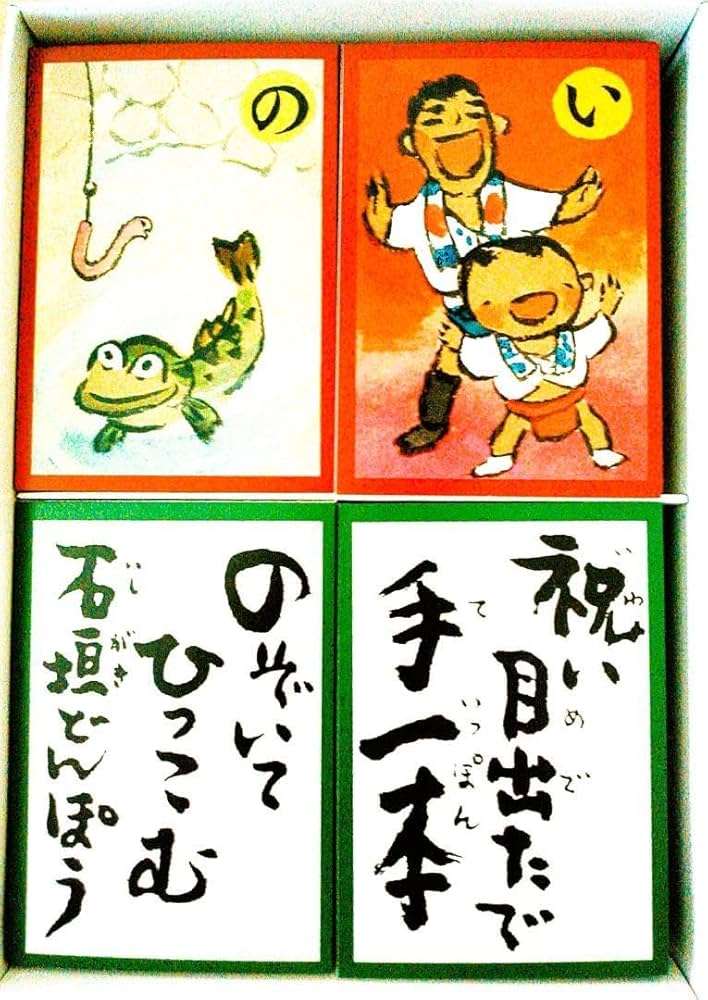 い
の
祝い
いわ
目出たで
めで
手一本
ていっぽん
のぞいて
ひっこむ
石垣どんぽう
いしがき